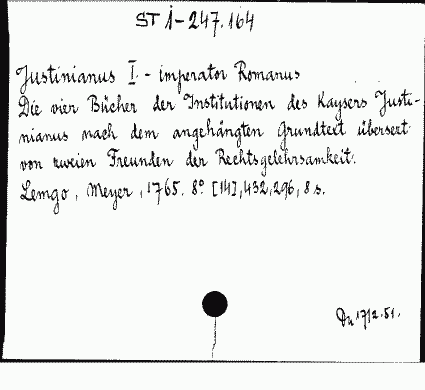 ST I-247.164
Justinianus I. - imperator Romanus
Die vier Bücher der Institutionen des Kaysers Justi-
nianus nach dem angehängten Grundtext übersert
von zweien Freunden der Rechtsgelehrsamkeit.
Lemgo, Meyer, 1765. 8° [14], 432, 296, 8 s.
Du 1712.51.